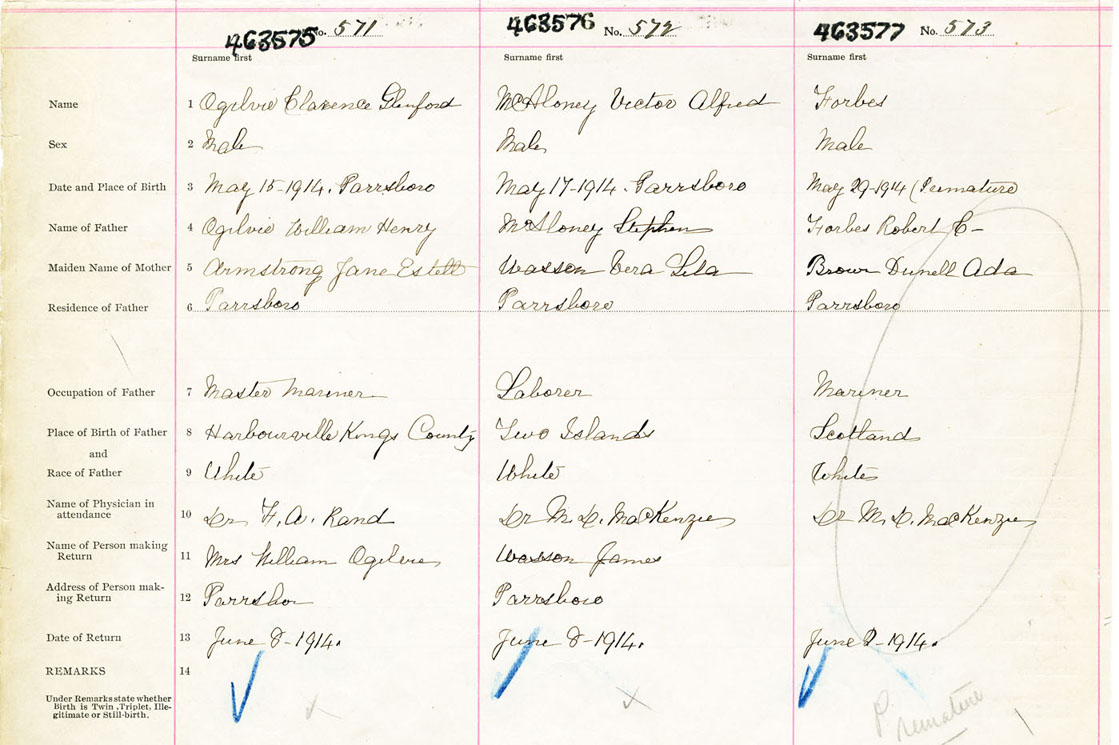 463575 No. 571 463576 No. 572 463577 No. 573
Surname first Surname first Surname first
Name 1 Ogilvie Clarence Glenford McAloney Victor Alfred Forbes
Sex 2 Male Male Male
Date and Place of Birth 3 May 15-1914. Parrsboro May 17-1914. Parrsboro May 29-1914 (Premature
Name of Father 4 Ogilvie William Henry McAloney Stephen Forbes Robert C-
Maiden Name of Mother 5 Armstrong Jane Estell Wasson Vera Lila Brown Dunell Ada
Residence of Father 6 Parrsboro Parrsboro Parrsboro
Occupation of Father 7 Master Mariner Laborer Mariner
Place of Birth of Father 8 Harbourville Kings County Two Islands Scotland
and
Race of Father 9 White White White
Name of Physician in
attendance 10 Dr F. A. Rand Dr M. D. MacKenzie Dr M. D. MacKenzie
Name of Person making
Return 11 Mrs William Ogilvie Wasson James
Address of Person mak-
ing Return 12 Parrsboro Parrsboro
Date of Return 13 June 8-1914. June 8-1914. June 8-1914.
REMARKS 14
Under Remarks state whether
Birth is Twin, Triplet, Ille-
gitimate or Still-birth.
Premature